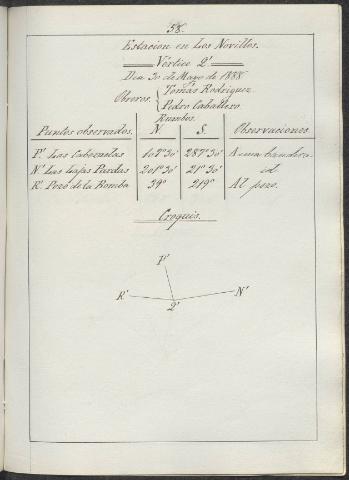 58.
Estacion en Los Novillos.
Vértice 2'
Dia 30 de Mayo de 1888
Obreros. Tomás Rodriguez
Pedro Caballero.
Rumbos.
Puntos observados. N. S. Observaciones
P.' Las Cabezuelas 107°30' 287°30' A una bandera
N.' Las Lajas Pardas 201°30' 21°30' id
R.' Pozo de la Bomba 39° 219° Al pozo.
Croquis.
P'
R' N'
2'